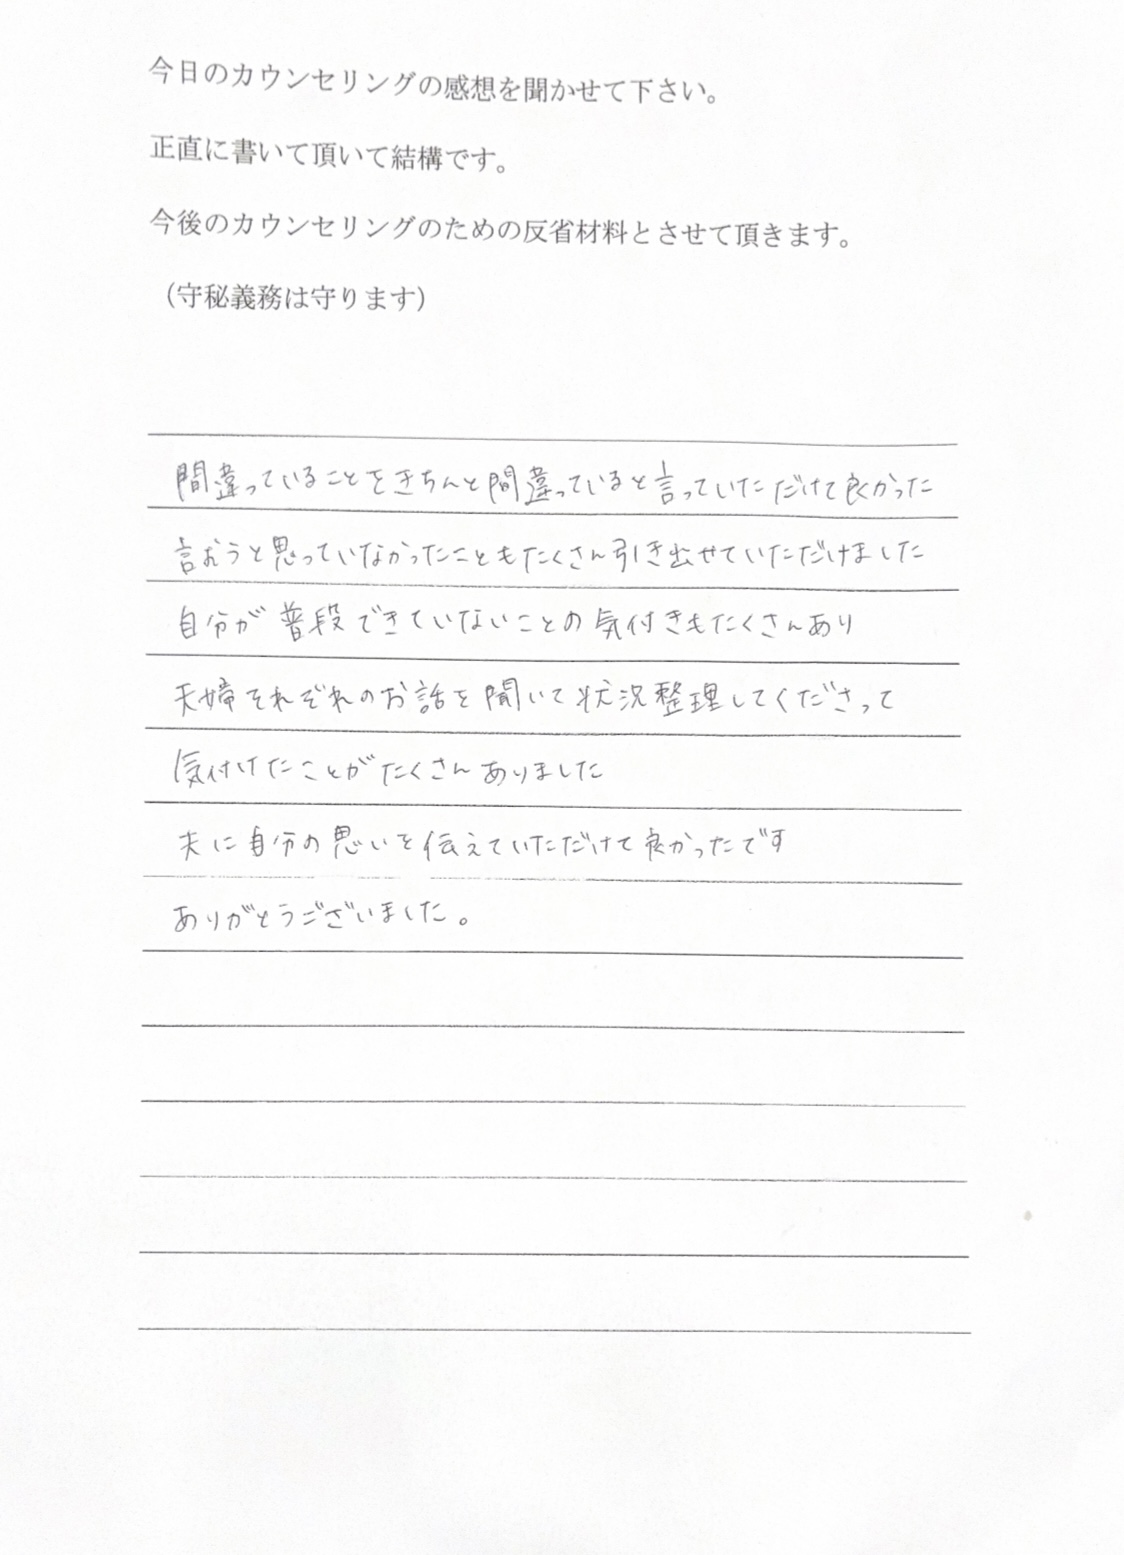 今日のカウンセリングの感想を聞かせて下さい。
正直に書いて頂いて結構です。
今後のカウンセリングのための反省材料とさせて頂きます。
（守秘義務は守ります）
間違っていることをきちんと間違っていると言っていただけて良かった
言おうと思っていなかったこともたくさん引き出せていただけました
自分が普段できていないことの気付きもたくさんあり
夫婦それぞれのお話を聞いて状況整理してくださって
気付けたことがたくさんありました
夫に自分の思いを伝えていただけて良かったです
ありがとうございました。